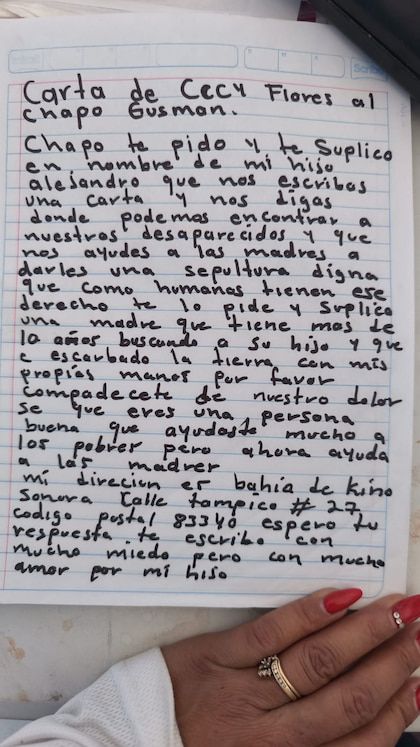 Carta de Cecy Flores al
chapo Gusman.
Chapo te pido y te Suplico
en nombre de mi hijo
alejandro que nos escribas
una carta y nos digas
donde podemos encontrar a
nuestros desaparecidos y que
nos ayudes a las madres a
darles una sepultura digna
que como humanas tienen ese
derecho te lo pide y Suplico
una madre que tiene mas de
10 años buscando a su hijo y que
e escarbado la tierra con mis
propias manos por favor
compadecete de nuestro dolor
se que eres una persona
buena que ayudaste mucho a
los pobres pero ahora ayuda
a las madres
mi direcion es bahia de Kino
Sonora Calle tampico # 27
codigo postal 83340 espero tu
respuesta te escribo con
mucho miedo pero con mucho
amor por mi hijo